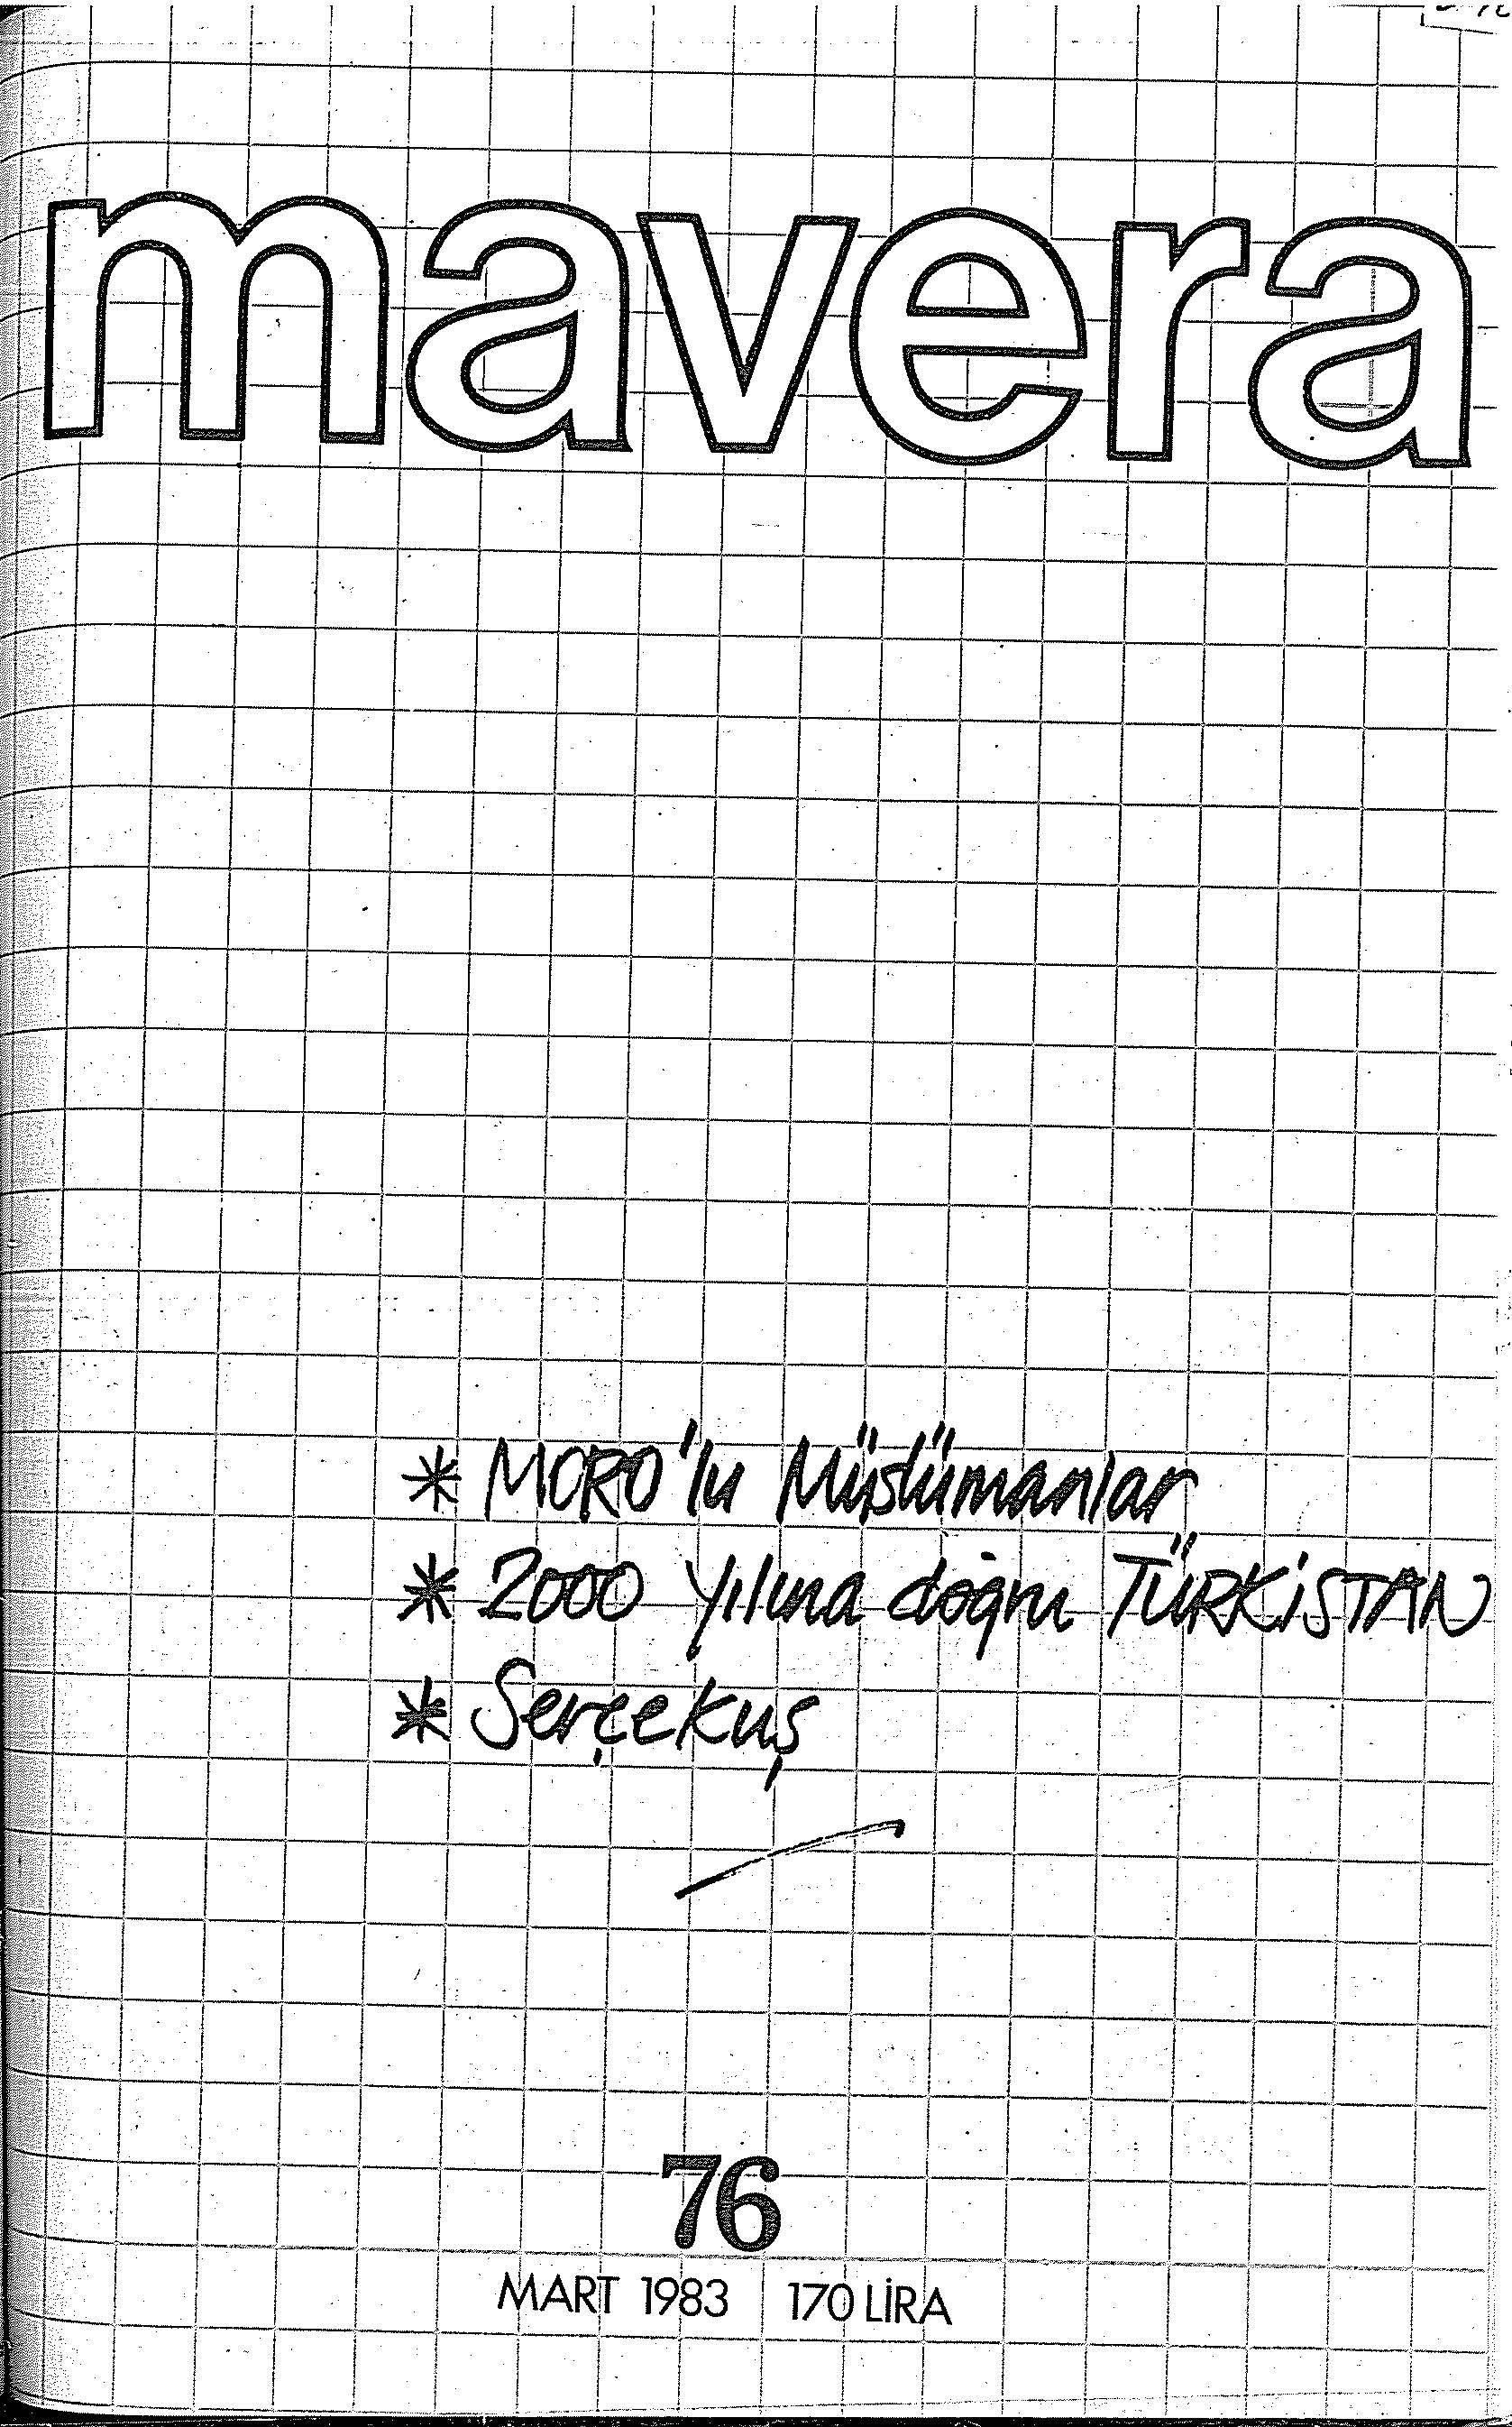 mavera
* MORO'lu Müslümanlar
* 2000 yılına doğru TÜRKİSTAN
* Serçekuş
76
MART 1983 170 LİRA